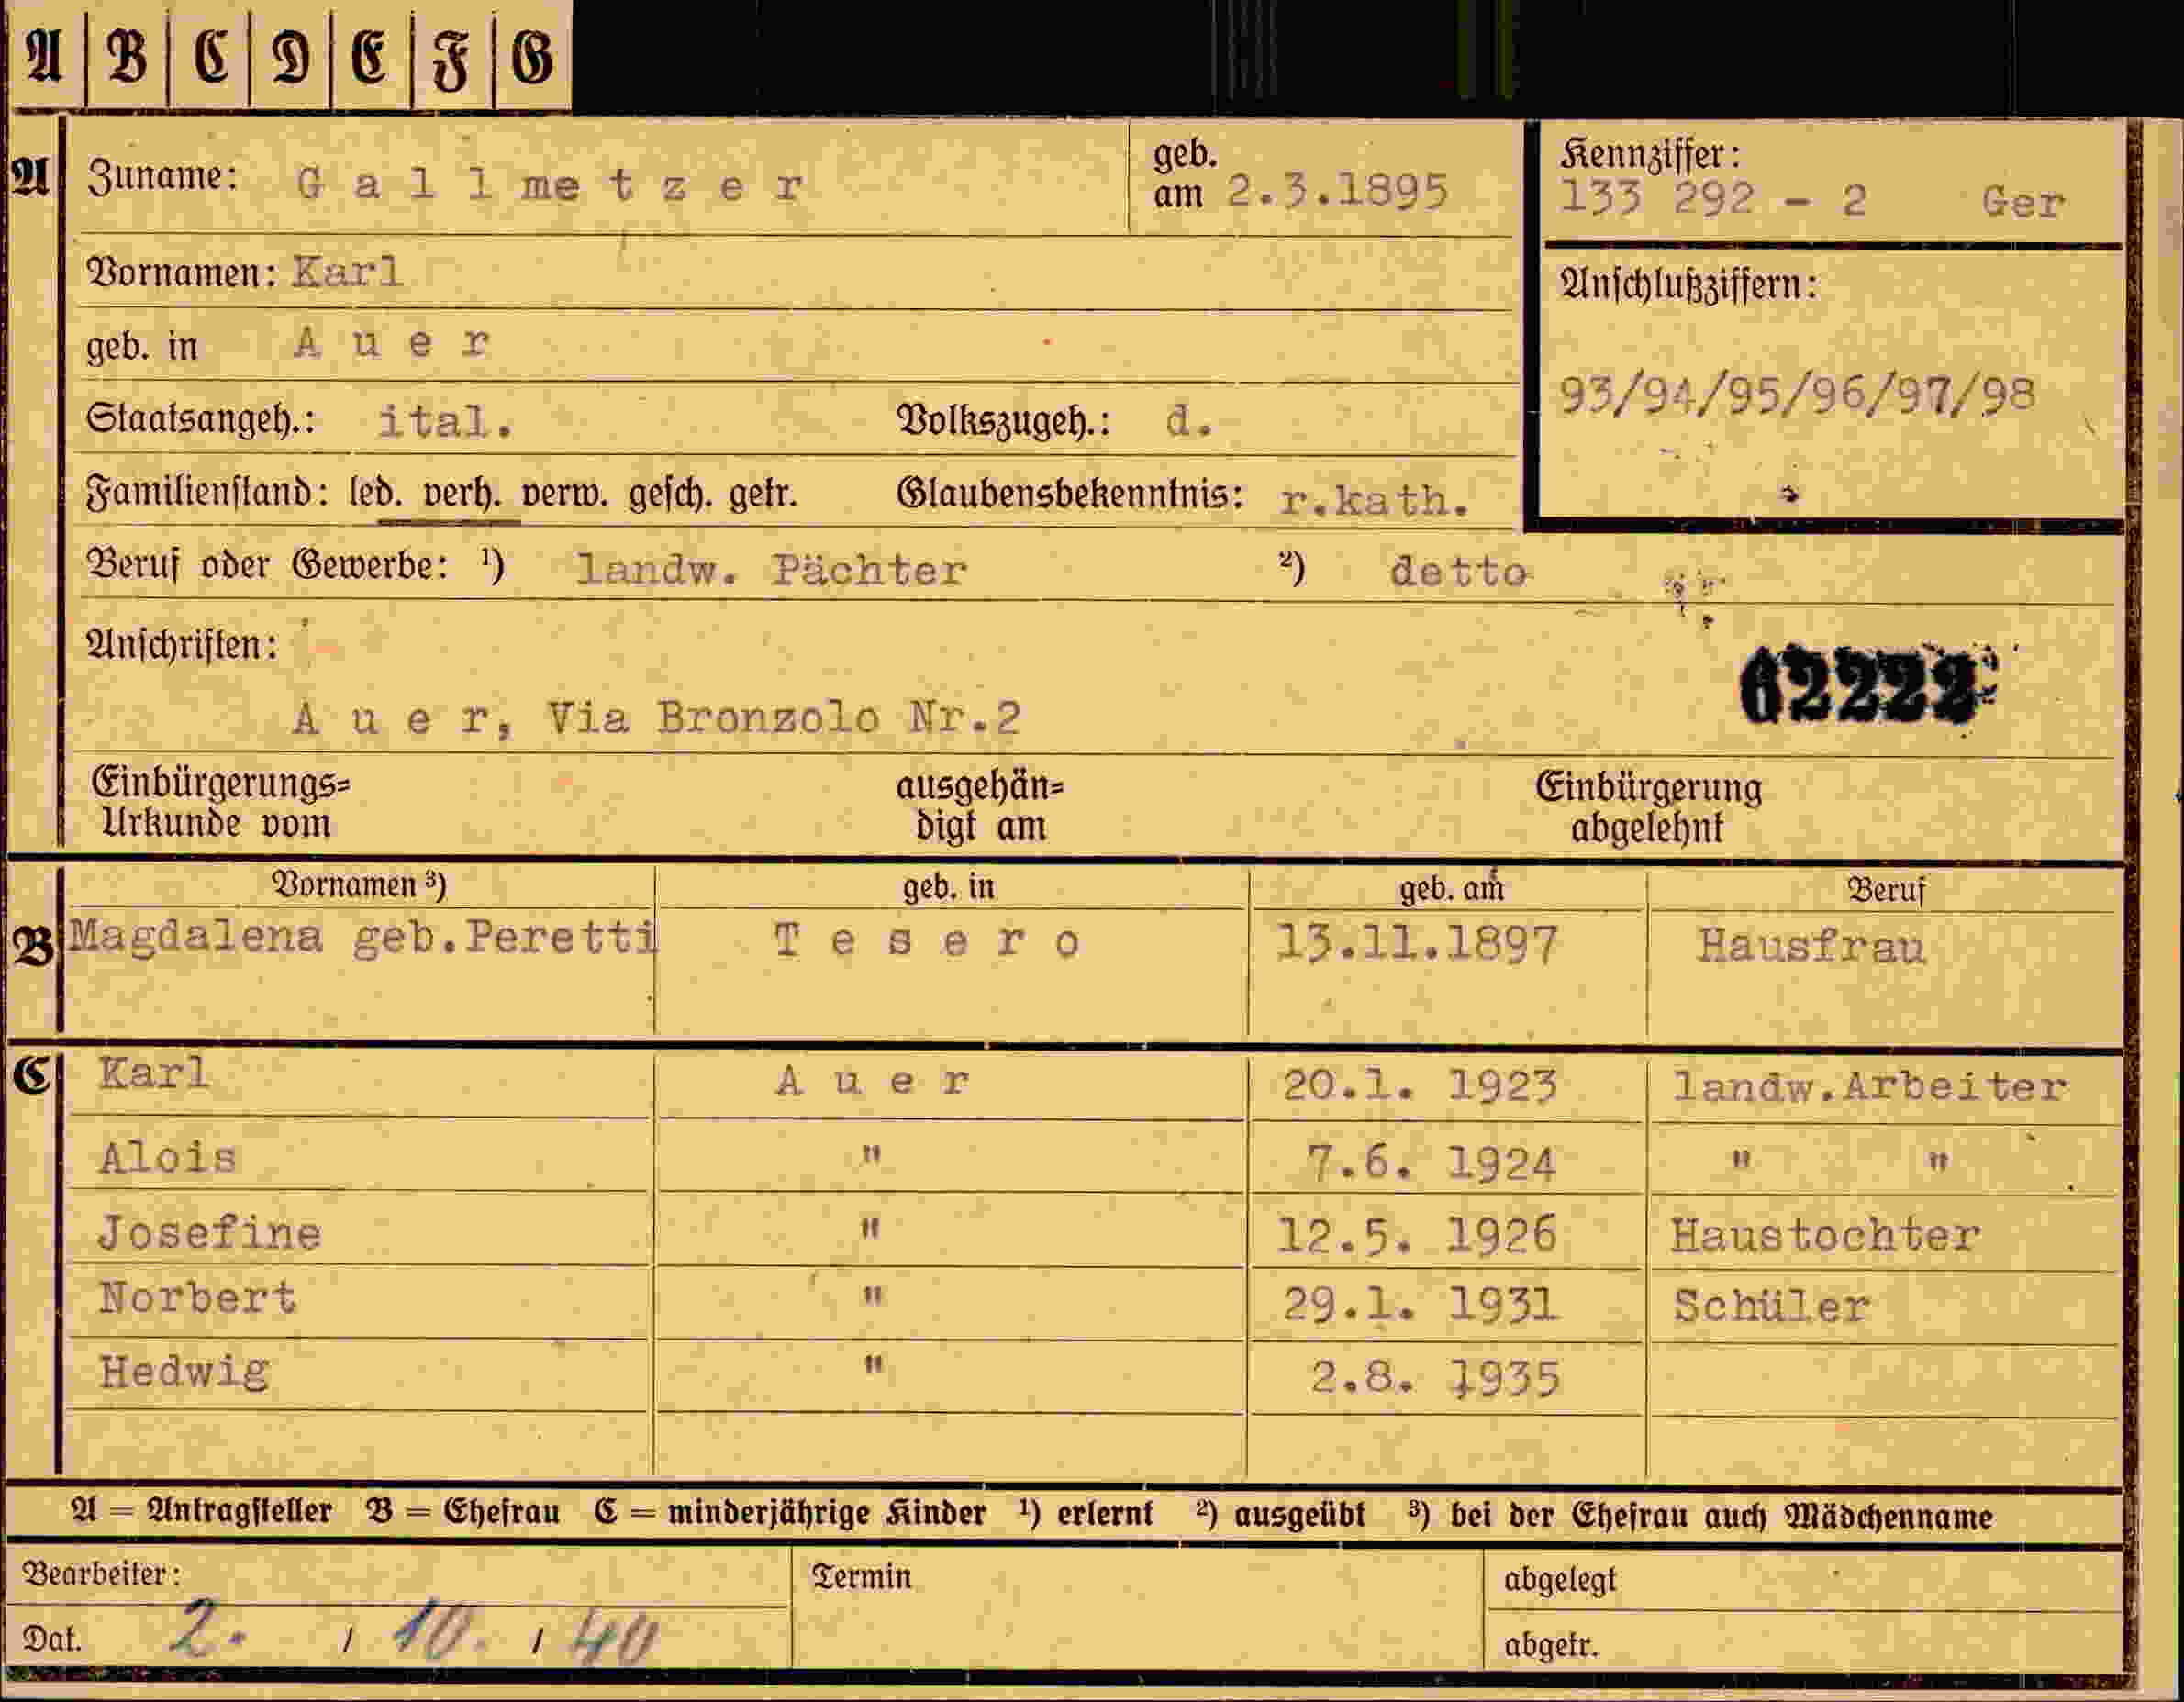 A B C D E F G
A Zuname: Gallmetzer geb. am 2.3.1895 Kennziffer: 133 292 - 2 Ger
Vornamen: Karl Anschlußziffern:
geb. in Auer 93/94/95/96/97/98
Staatsangeh.: ital. Volkszugeh.: d.
Familienstand: led. verh. verw. gesch. getr. Glaubensbekenntnis: r.kath.
Beruf oder Gewerbe: ¹) landw. Pächter ²) detto
Anschriften: 62222
Auer, Via Bronzolo Nr.2
Einbürgerungs= ausgehän= Einbürgerung
Urkunde vom digt am abgelehnt
Vornamen ³) geb. in geb. am Beruf
B Magdalena geb.Peretti Tesero 13.11.1897 Hausfrau
C Karl Auer 20.1. 1923 landw.Arbeiter
Alois " 7.6. 1924 " "
Josefine " 12.5. 1926 Haustochter
Norbert " 29.1. 1931 Schüler
Hedwig " 2.8. 1935
A = Antragsteller B = Ehefrau C = minderjährige Kinder ¹) erlernt ²) ausgeübt ³) bei der Ehefrau auch Mädchenname
Bearbeiter: Termin abgelegt
Dat. 2. / 10. / 40 abgetr.